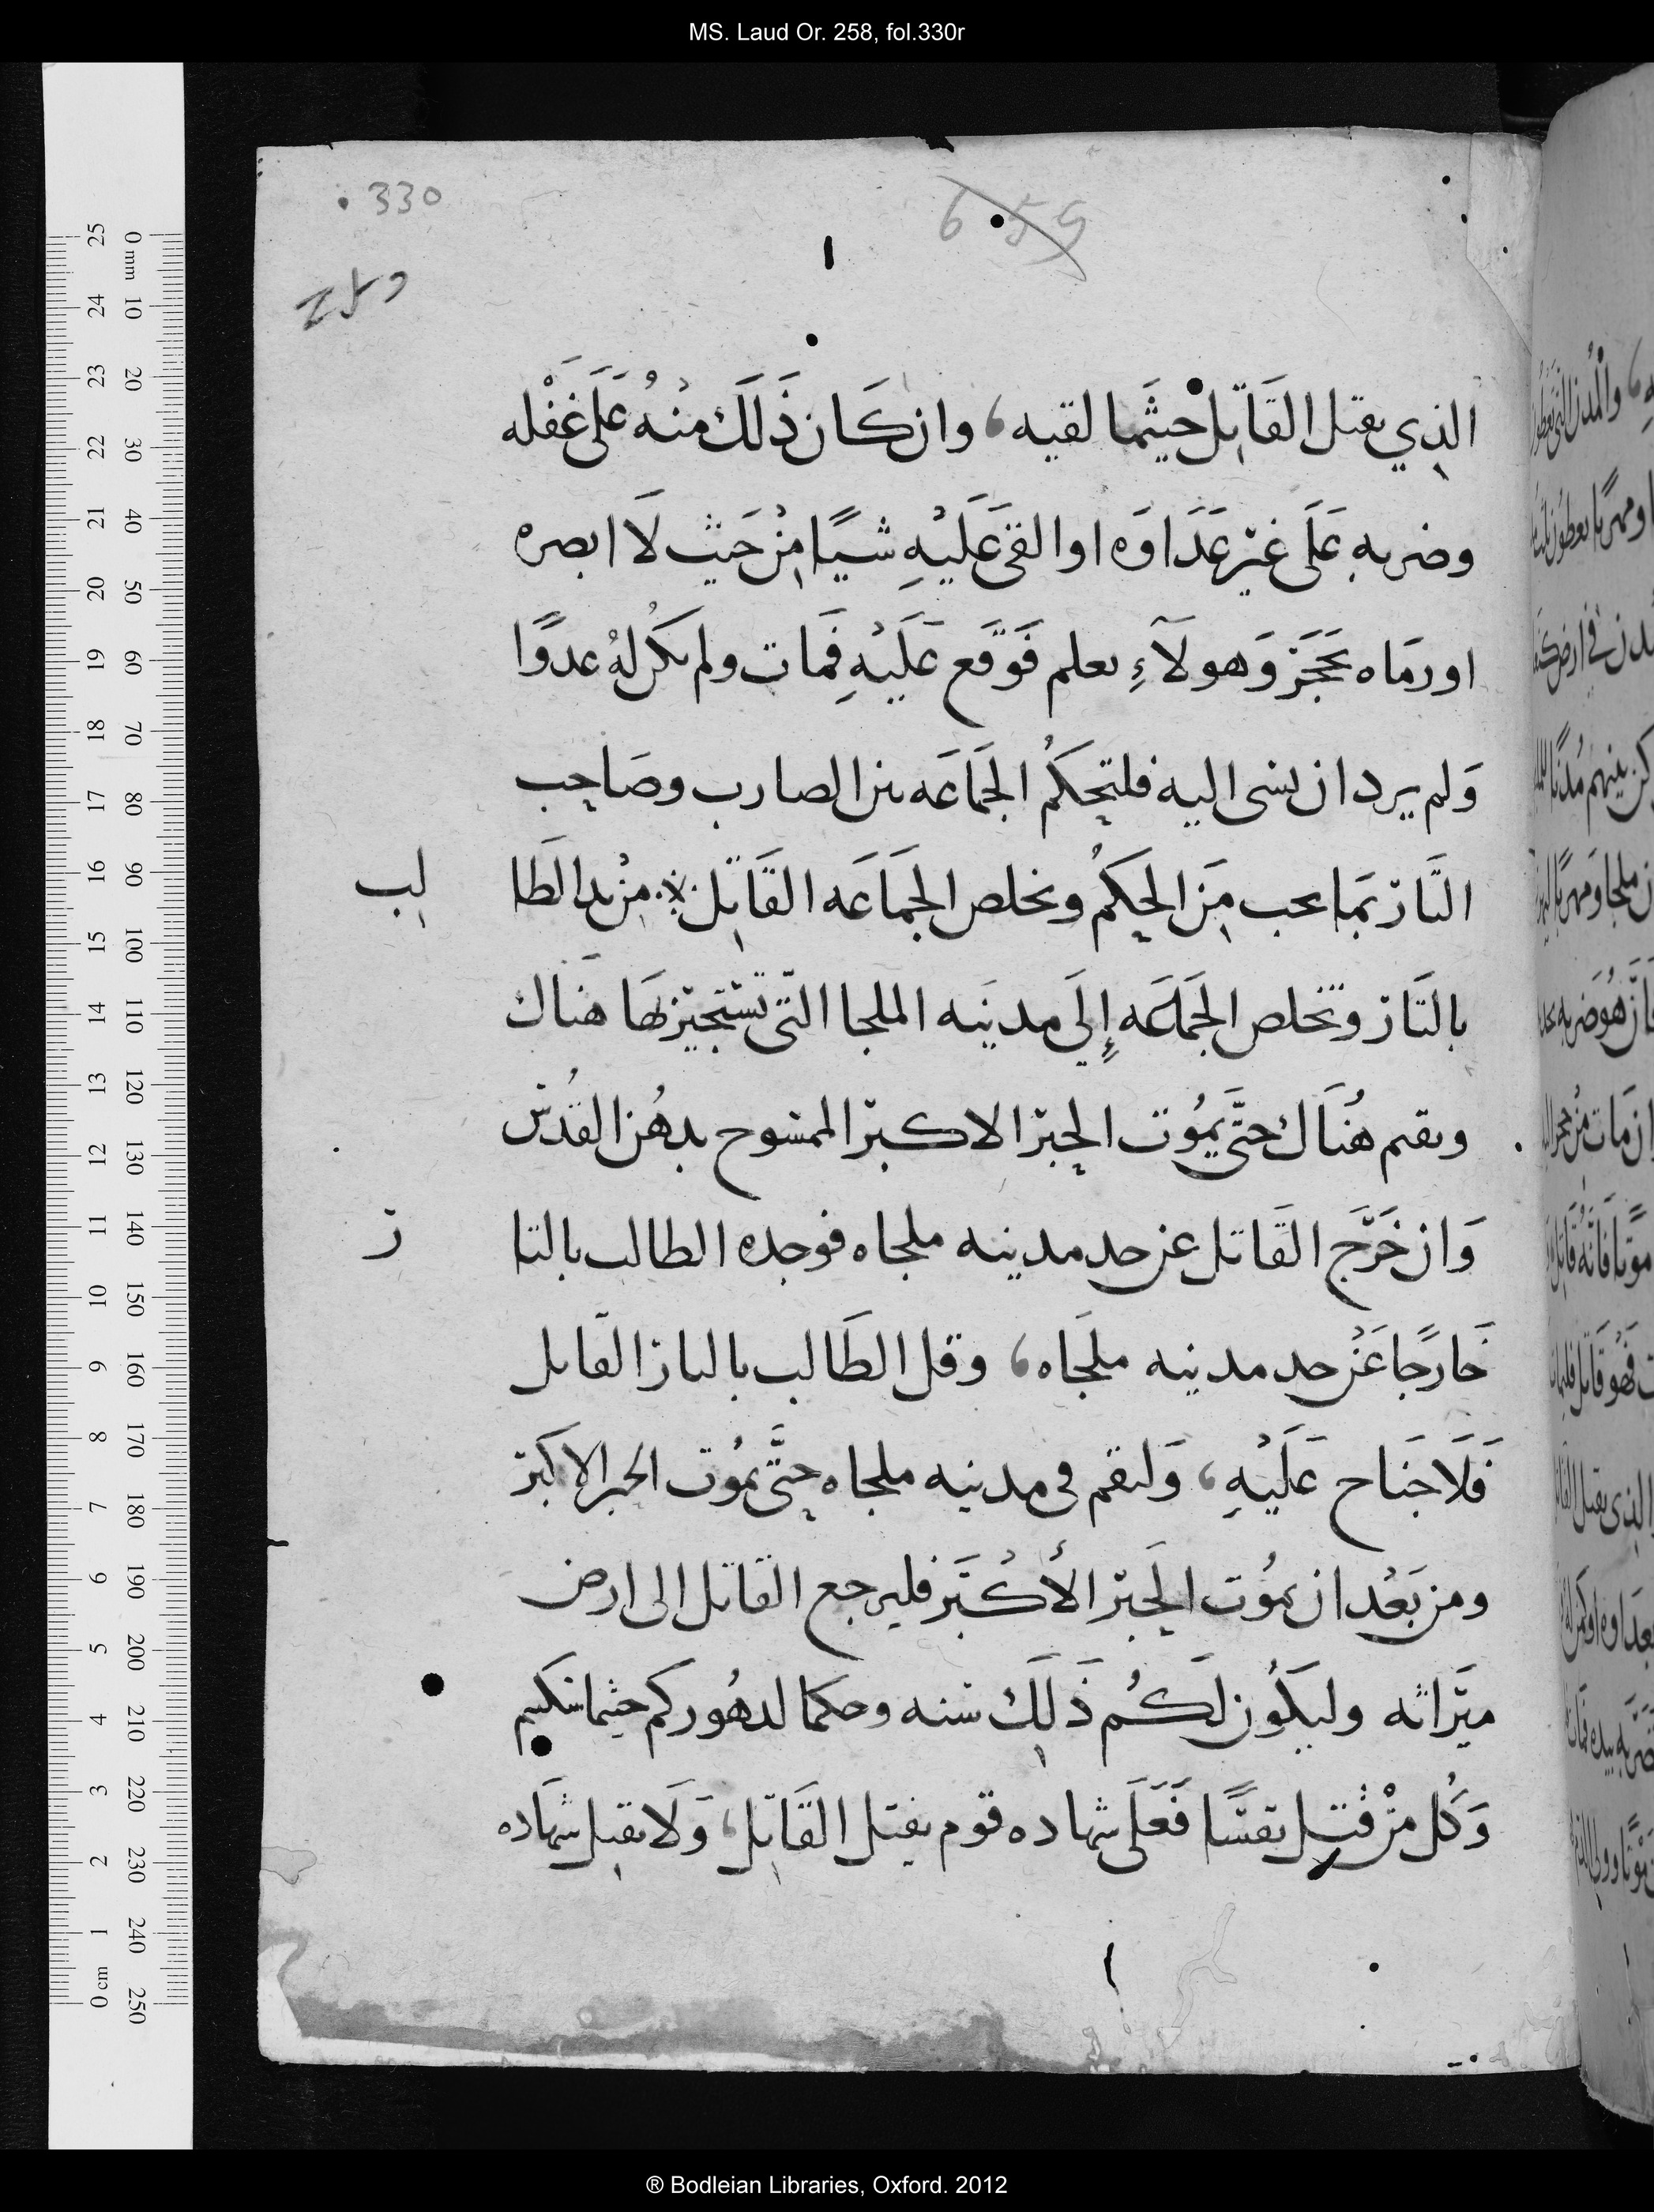 MS. Laud Or. 258, fol.330r
330
659
الذي يقتل القَاتِل حيثَما لقيه، وان كَان ذَلَك منْهُ عَلَى غَفْله
وضربه عَلَى غيْر عَدَاوَه او القى عَليْهِ شيًا مِنْ حَيث لَا ابصره
اورمَاه بحَجَر وَهو لَآءِ يعلم فَوقَع عَلَيْهِ فَمات ولم يكُن لهُ عدوًا
وَلم يرد ان يسى اليه فليَحكُم الجَمَاعَه بين الضارب وصَاحِب
الثَار بمَا يجب مِنَ الحِكمُ وتخلص الجَمَاعَه القَاتِل مِنْ يد الطَا لِب
بالثَار وتخلص الجَمَاعَه إِلَى مدينَه الملجا التّى تسْتجيْر بهَا هنَاك
ويقيم هُنَاك حتَّى يمُوت الحِبر الاكبر الممسوح بدهُن القُدس
وَان خَرَج القَاتل عن حد مدينه ملجاه فوجده الطالب بالثا ر
خَارجًا عَنْ حد مدينه ملجَاه، وقتل الطَالب بالثار القَاتل
فَلَا جنَاح عَلَيْهِ، وَليقم فى مدينه ملجاه حتَّى يمُوت الحبر الاكبر
ومن بَعْد ان يمُوت الحَبْر الأكْبَر فليرجع القَاتل الى ارض
ميَراثه وليكُون لَكُم ذَلِك سنه وحكما لدهُوركم حيثما سكنتم
وَكُل مَنْ قتِل نفسًا فَعَلَى شهاده قوم يقتل القَاتِل، وَلَا تقبل شهَاده
® Bodleian Libraries, Oxford. 2012